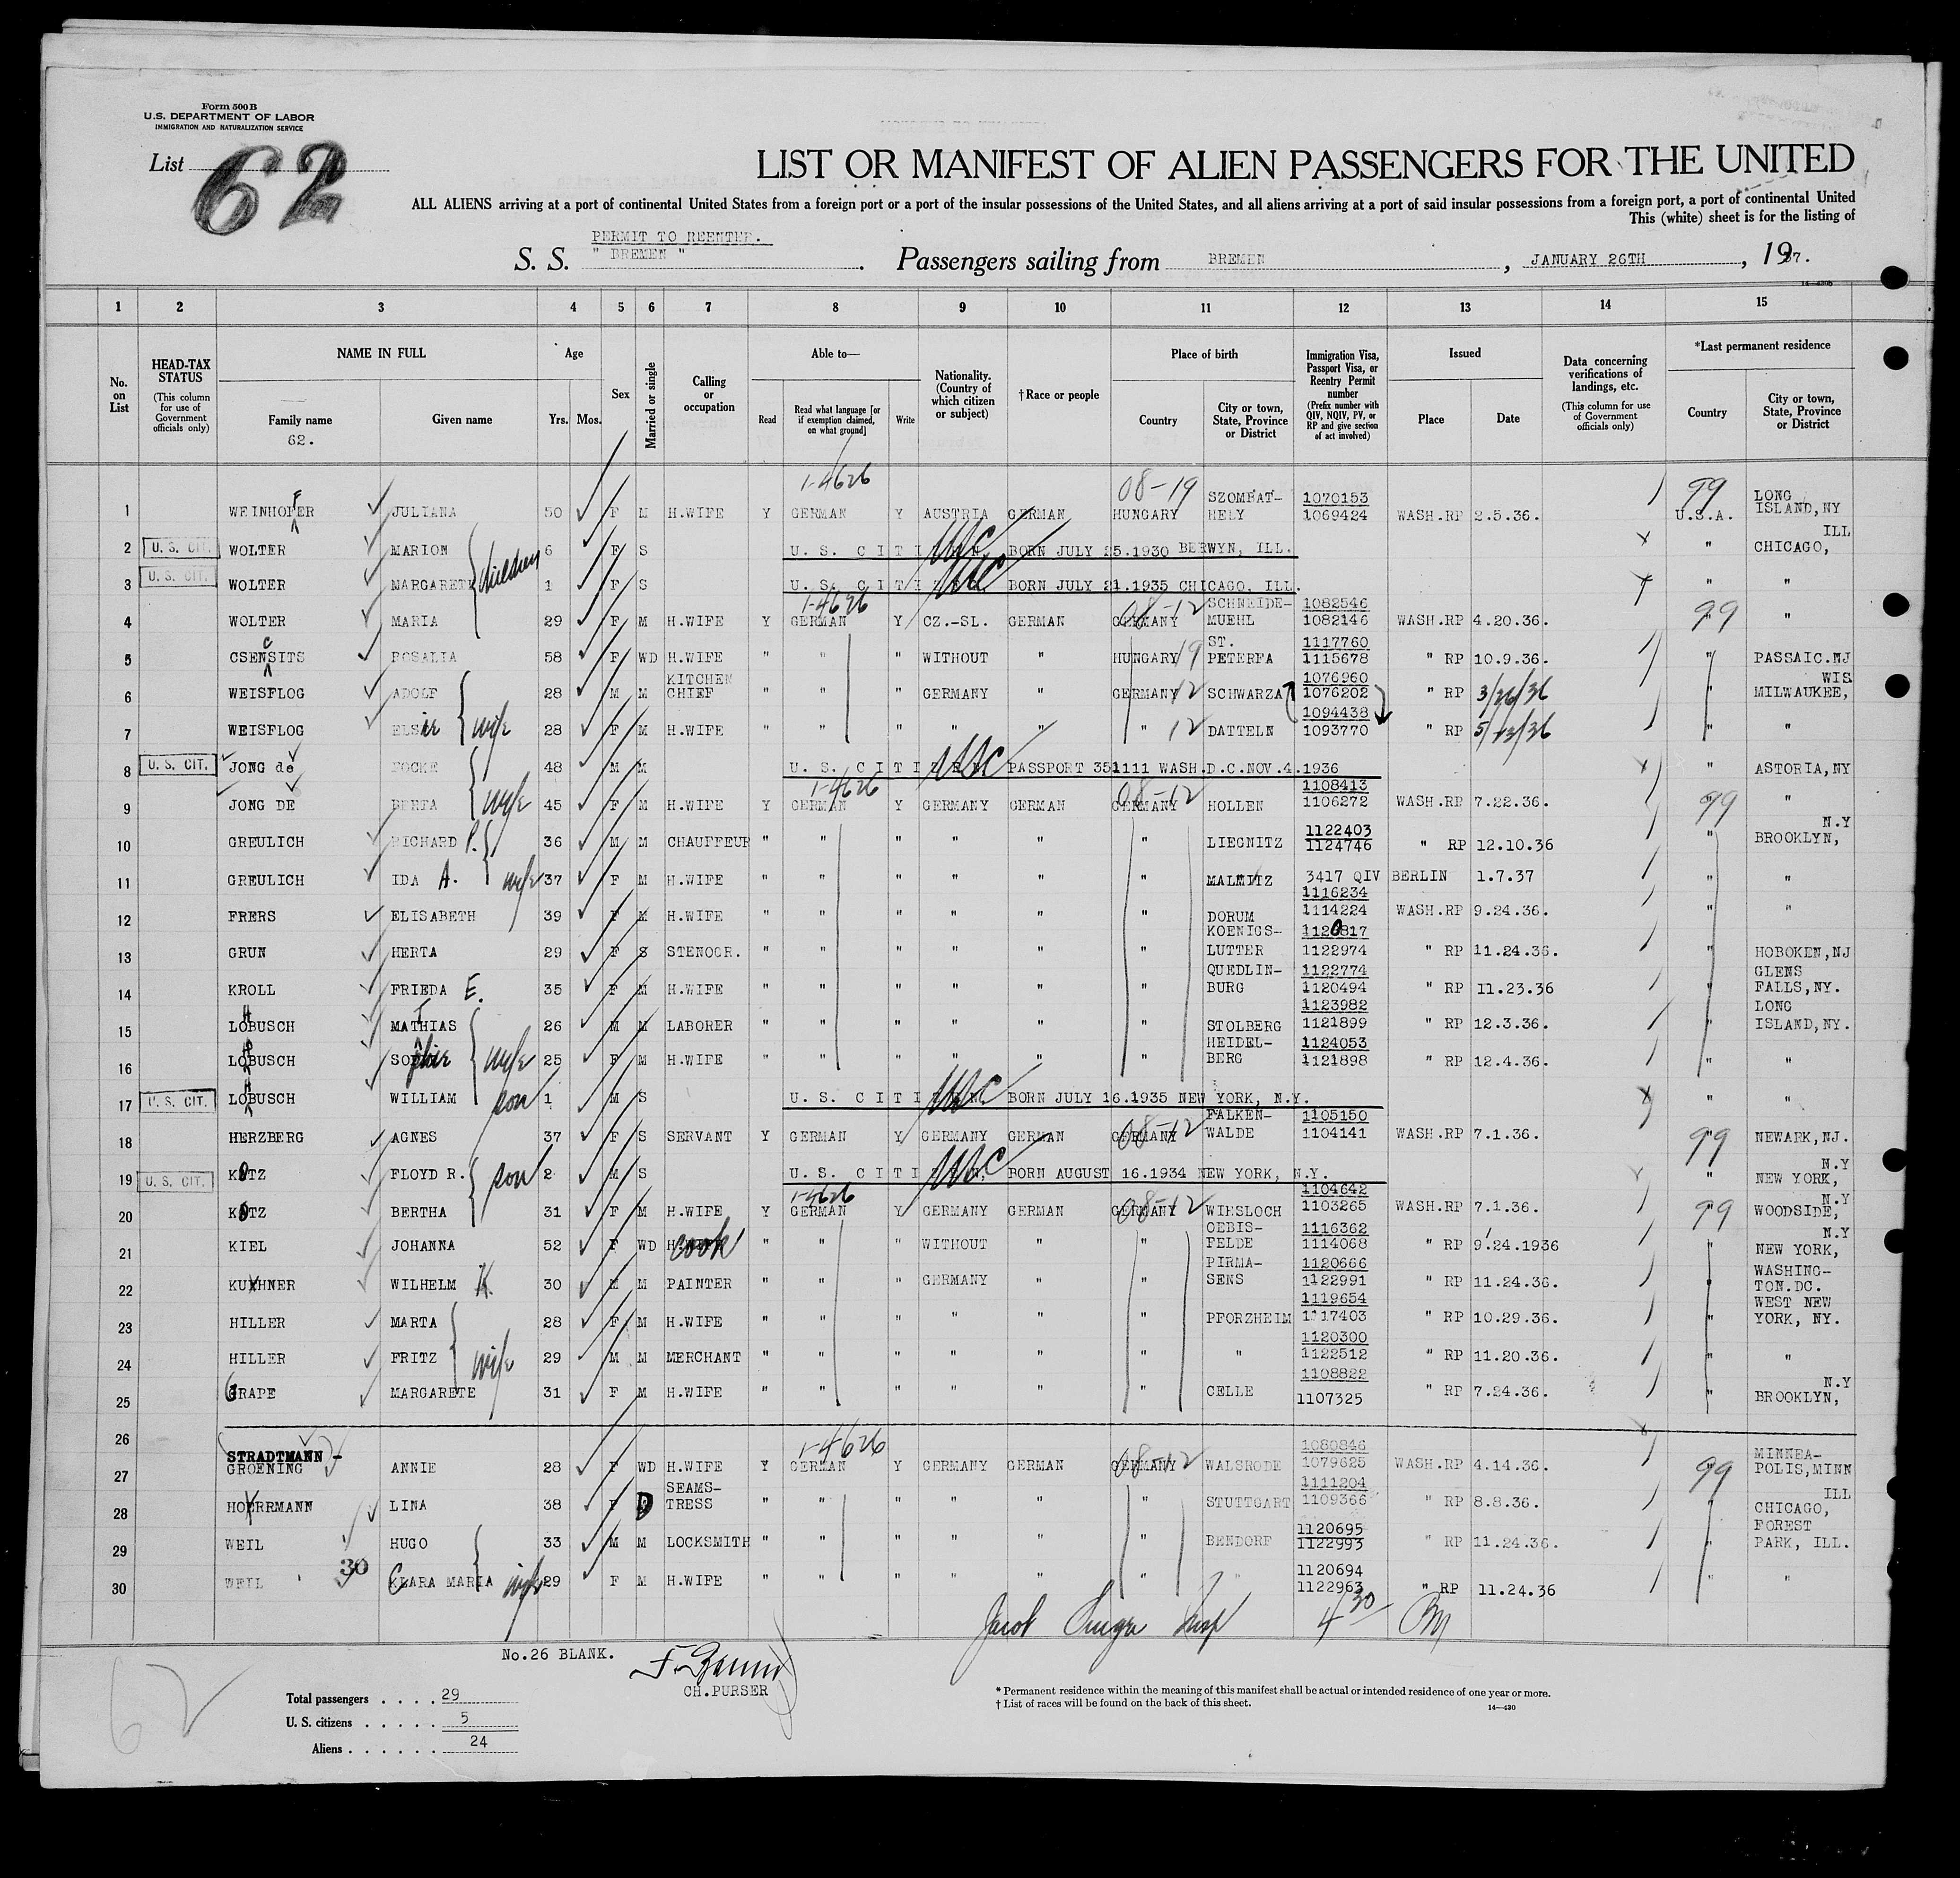 Form 500 B
U.S. DEPARTMENT OF LABOR
IMMIGRATION AND NATURALIZATION SERVICE
List 62
LIST OR MANIFEST OF ALIEN PASSENGERS FOR THE UNITED
ALL ALIENS arriving at a port of continental United States from a foreign port or a port of the insular possessions of the United States, and all aliens arriving at a port of said insular possessions from a foreign port, a port of continental United
This (white) sheet is for the listing of
PERMIT TO REENTER.
S. S. " BREMEN " . Passengers sailing from BREMEN , JANUARY 26TH , 1937.
1 2 3 4 5 6 7 8 9 10 11 12 13 14 15
No. on List
HEAD-TAX STATUS (This column for use of Government officials only)
NAME IN FULL Family name 62. Given name
Age Yrs. Mos.
Sex
Married or single
Calling or occupation
Able to— Read Read what language [or if exemption claimed, on what ground] Write
Nationality. (Country of which citizen or subject)
†Race or people
Place of birth Country City or town, State, Province or District
Immigration Visa, Passport Visa, or Reentry Permit number (Prefix number with QIV, NQIV, PV, or RP and give section of act involved)
Issued Place Date
Data concerning verifications of landings, etc. (This column for use of Government officials only)
*Last permanent residence Country City or town, State, Province or District
1 WEINHOFER F JULIANA 50 F M H.WIFE Y GERMAN 1-4626 Y AUSTRIA GERMAN HUNGARY 08-19 SZOMBAT-HELY 1070153 1069424 WASH.RP 2.5.36. 99 U.S.A. LONG ISLAND,NY
2 U. S. CIT. WOLTER MARION children 6 F S U. S. CITIZEN. USC BORN JULY 25.1930 BERWYN, ILL. " CHICAGO, ILL
3 U. S. CIT. WOLTER MARGARETE 1 F S U. S. CITIZEN. USC BORN JULY 21.1935 CHICAGO, ILL. " "
4 WOLTER MARIA 29 F M H.WIFE Y GERMAN 1-4626 Y CZ.-SL. GERMAN GERMANY 08-12 SCHNEIDE-MUEHL 1082546 1082146 WASH.RP 4.20.36. 99 "
5 CSENSITS C ROSALIA 58 F WD H.WIFE " " " WITHOUT " HUNGARY 19 ST. PETERFA 1117760 1115678 " RP 10.9.36. " PASSAIC.NJ
6 WEISFLOG ADOLF 28 M M KITCHEN CHIEF " " " GERMANY " GERMANY 12 SCHWARZA 1076960 1076202 " RP 3/26/36 " MILWAUKEE, WIS
7 WEISFLOG ELSie wife 28 F M H.WIFE " " " " " " 12 DATTELN 1094438 1093770 " RP 5/13/36 " "
8 U. S. CIT. JONG de FOCKE 48 M M U. S. CITIZEN. USC PASSPORT 351111 WASH.D.C.NOV.4.1936 " ASTORIA,NY
9 JONG DE BERTA wife 45 F M H.WIFE Y GERMAN 1-4626 Y GERMANY GERMAN GERMANY 08-12 HOLLEN 1108413 1106272 WASH.RP 7.22.36. 99 "
10 GREULICH RICHARD P. 36 M M CHAUFFEUR " " " " " " LIEGNITZ 1122403 1124746 " RP 12.10.36 " BROOKLYN, N.Y
11 GREULICH IDA A. wife 37 F M H.WIFE " " " " " " MALMITZ 3417 QIV BERLIN 1.7.37 " "
12 FRERS ELISABETH 39 F M H.WIFE " " " " " " DORUM 1116234 1114224 WASH.RP 9.24.36. " "
13 GRUN HERTA 29 F S STENOGR. " " " " " " KOENIGS-LUTTER 1120817 1122974 " RP 11.24.36. " HOBOKEN,NJ
14 KROLL FRIEDA E. 35 F M H.WIFE " " " " " " QUEDLIN-BURG 1122774 1120494 " RP 11.23.36 " GLENS FALLS,NY.
15 LOBUSCH H MATHIAS T 26 M M LABORER " " " " " " STOLBERG 1123982 1121899 " RP 12.3.36. " LONG ISLAND,NY.
16 LOBUSCH H SOphie wife 25 F M H.WIFE " " " " " " HEIDEL-BERG 1124053 1121898 " RP 12.4.36. " "
17 U. S. CIT. LOBUSCH H WILLIAM son 1 M S U. S. CITIZEN. USC BORN JULY 16.1935 NEW YORK, N.Y. " "
18 HERZBERG AGNES 37 F S SERVANT Y GERMAN Y GERMANY GERMAN GERMANY 08-12 FALKEN-WALDE 1105150 1104141 WASH.RP 7.1.36. 99 NEWARK,NJ.
19 U. S. CIT. KOTZ FLOYD R. son 2 M S U. S. CITIZEN. USC BORN AUGUST 16.1934 NEW YORK, N.Y. " NEW YORK, N.Y
20 KOTZ BERTHA 31 F M H.WIFE Y GERMAN 1-4626 Y GERMANY GERMAN GERMANY 08-12 WIESLOCH 1104642 1103265 WASH.RP 7.1.36. 99 WOODSIDE, N.Y
21 KIEL JOHANNA 52 F WD cook " " " WITHOUT " " OEBIS-FELDE 1116362 1114068 " RP 9.24.1936 " NEW YORK, N.Y
22 KUXHNER WILHELM K. 30 M M PAINTER " " " GERMANY " " PIRMA-SENS 1120666 1122991 " RP 11.24.36. " WASHING-TON.DC.
23 HILLER MARTA 28 F M H.WIFE " " " " " " PFORZHEIM 1119654 1117403 " RP 10.29.36. " WEST NEW YORK, NY.
24 HILLER FRITZ wife 29 M M MERCHANT " " " " " " " 1120300 1122512 " RP 11.20.36. " "
25 GRAPE MARGARETE 31 F M H.WIFE " " " " " " CELLE 1108822 1107325 " RP 7.24.36. " BROOKLYN, N.Y
26
27 STRADTMANN - GROENING ANNIE 28 F WD H.WIFE Y GERMAN 1-4626 Y GERMANY GERMAN GERMANY 08-12 WALSRODE 1080846 1079625 WASH.RP 4.14.36. 99 MINNEA-POLIS,MINN
28 HOERRMANN LINA 38 F D SEAMS-TRESS " " " " " " STUTTGART 1111204 1109366 " RP 8.8.36. " CHICAGO, ILL
29 WEIL HUGO 33 M M LOCKSMITH " " " " " " BENDORF 1120695 1122993 " RP 11.24.36. " FOREST PARK, ILL.
30 WEIL 30 KLARA MARIA wife 29 F M H.WIFE " " " " " " " 1120694 1122963 " RP 11.24.36 " "
Jacob Insp 4 30
No.26 BLANK.
CH.PURSER
62
Total passengers . . . . 29
U. S. citizens . . . . . 5
Aliens . . . . . . 24
* Permanent residence within the meaning of this manifest shall be actual or intended residence of one year or more.
† List of races will be found on the back of this sheet.
14—430